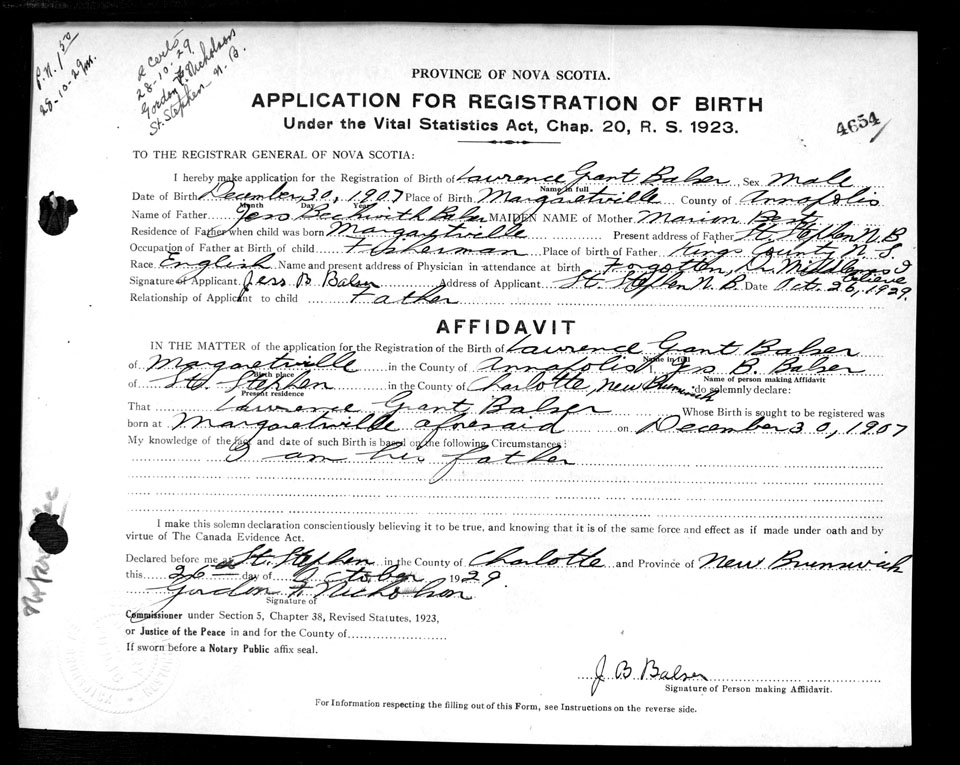 P.N. 1 50
28-10-29
2 Certs
28-10-29
Gordon F. Nicholson
St. Stephen N.B.
PROVINCE OF NOVA SCOTIA.
APPLICATION FOR REGISTRATION OF BIRTH
Under the Vital Statistics Act, Chap. 20, R. S. 1923.
4654
TO THE REGISTRAR GENERAL OF NOVA SCOTIA:
I hereby make application for the Registration of Birth of Lawrence Grant Balser, Sex Male
Name in full
Date of Birth December 30, 1907 Place of Birth Margaretville County of Annapolis
Month Day Year
Name of Father Jess Beckwith Balser MAIDEN NAME of Mother Marion Best
Residence of Father when child was born Margaretville Present address of Father St. Stephen N.B
Occupation of Father at Birth of child Fisherman Place of birth of Father Kings County N.S.
Race English Name and present address of Physician in attendance at birth Forgotten, Dr. Middlemas I believe
Signature of Applicant Jess B Balser Address of Applicant St. Stephen N.B. Date Oct. 26, 1929.
Relationship of Applicant to child Father
AFFIDAVIT
IN THE MATTER of the application for the Registration of the Birth of Lawrence Grant Balser
Name in full
of Margaretville in the County of Annapolis I, Jess B. Balser
Birth place Name of person making Affidavit
of St. Stephen in the County of Charlotte, New Brunswick do solemnly declare:
Present residence
That Lawrence Grant Balser Whose Birth is sought to be registered was
born at Margaretville aforesaid on December 30, 1907
My knowledge of the fact and date of such Birth is based on the following Circumstances:
I am his father
I make this solemn declaration conscientiously believing it to be true, and knowing that it is of the same force and effect as if made under oath and by
virtue of The Canada Evidence Act.
Declared before me at St. Stephen in the County of Charlotte and Province of New Brunswick
this 26th day of October 1929.
Gordon F. Nicholson
Signature of
Commissioner under Section 5, Chapter 38, Revised Statutes, 1923,
or Justice of the Peace in and for the County of
If sworn before a Notary Public affix seal.
J. B Balser
Signature of Person making Affidavit.
For Information respecting the filling out of this Form, see Instructions on the reverse side.